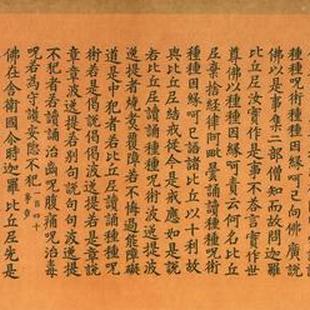 種種呪術種種因緣呵已向佛廣說
佛以是事集二部僧知而故問迦羅
比丘尼汝實作是事不荅言實作世
尊佛以種種因緣呵責云何名比丘
尼棄捨經律阿毗曇誦讀種種呪術
種種因緣呵已語諸比丘以十利故
與比丘尼結戒從今是戒應如是說
若比丘尼讀誦種種呪術波逸提波
逸提者燒煮覆障若不悔過能障礙
道是中犯者若比丘尼讀誦種種呪
術若是偈說偈偈波逸提若是章說
章章波逸提若別句說句句波逸提
不犯者若讀誦治齒呪腹痛呪治毒
呪若為守護安隱不犯 一百四十事竟
佛在舍衛國尒時迦羅比丘尼先是